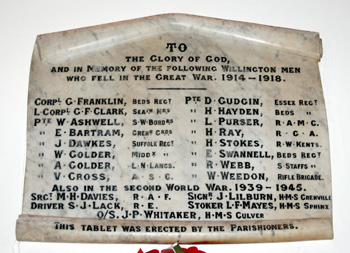 TO
THE GLORY OF GOD,
AND IN MEMORY OF THE FOLLOWING WILLINGTON MEN
WHO FELL IN THE GREAT WAR. 1914-1918.
CORPL G. FRANKLIN, BEDS REGT PTE D. GUDGIN, ESSEX REGT
L-CORPL G. F. CLARK, SEA'H HRS " H. HAYDEN, BEDS "
PTE W. ASHWELL, S.W. BORDRS " L. PURSER, R.A.M.C.
" E. BARTRAM, GREN. GARDS " H. RAY, R.G.A.
" J. DAWKES, SUFFOLK REGT " H. STOKES, R.W. KENTS.
" W. GOLDER, MIDDX " " E. SWANNELL, BEDS REGT
" A. GOLDER, L.N. LANCS. " R. WEBB, S. STAFFS "
" V. CROSS, A.S.C. " W. WEEDON, RIFLE BRIGADE.
ALSO IN THE SECOND WORLD WAR. 1939-1945.
SRGT. M.H. DAVIES, R.A.F. SIGNL. J. LILBURN, H.M.S GRENVILLE
DRIVER S.J. LACK, R.E. STOKER L.F. MAYES, H.M.S SPHINX
O/S. J.P. WHITAKER, H.M.S CULVER
THIS TABLET WAS ERECTED BY THE PARISHIONERS.